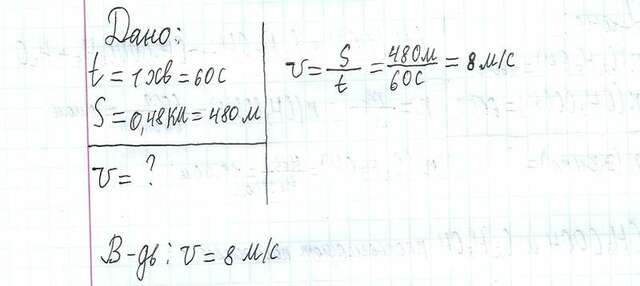 Дано:
t = 1 хв = 60 с
S = 0,48 км = 480 м
v = ?
v = S/t = 480 м/60 с = 8 м/с
В-дь: v = 8 м/с